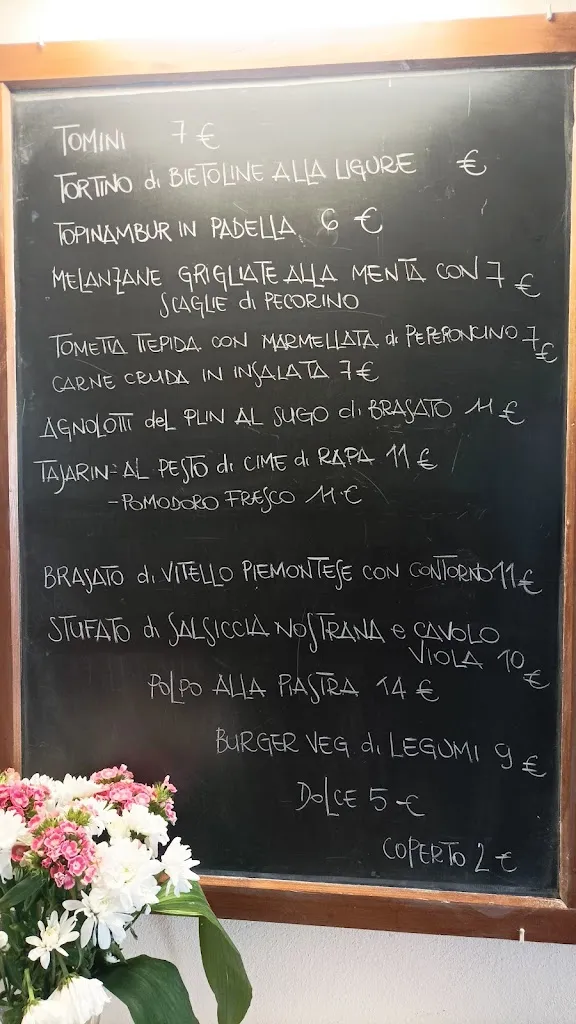 TOMINI 7 €
TORTINO di BIETOLINE ALLA LIGURE €
TOPINAMBUR IN PADELLA 6 €
MELANZANE GRIGLIATE ALLA MENTA CON 7 €
SCAGLIE di PECORINO
TOMETTA TIEPIDA CON MARMELLATA di PEPERONCINO 7 €
CARNE CRUDA IN INSALATA 7 €
AGNOLOTTI del PLIN AL SUGO di BRASATO 11 €
TAJARIN - AL PESTO di CIME di RAPA 11 €
- POMODORO FRESCO 11 €
BRASATO di VITELLO PIEMONTESE CON CONTORNO 11 €
STUFATO di SALSICCIA NOSTRANA e CAVOLO
VIOLA 10 €
POLPO ALLA PIASTRA 14 €
BURGER VEG di LEGUMI 9 €
DOLCE 5 €
COPERTO 2 €